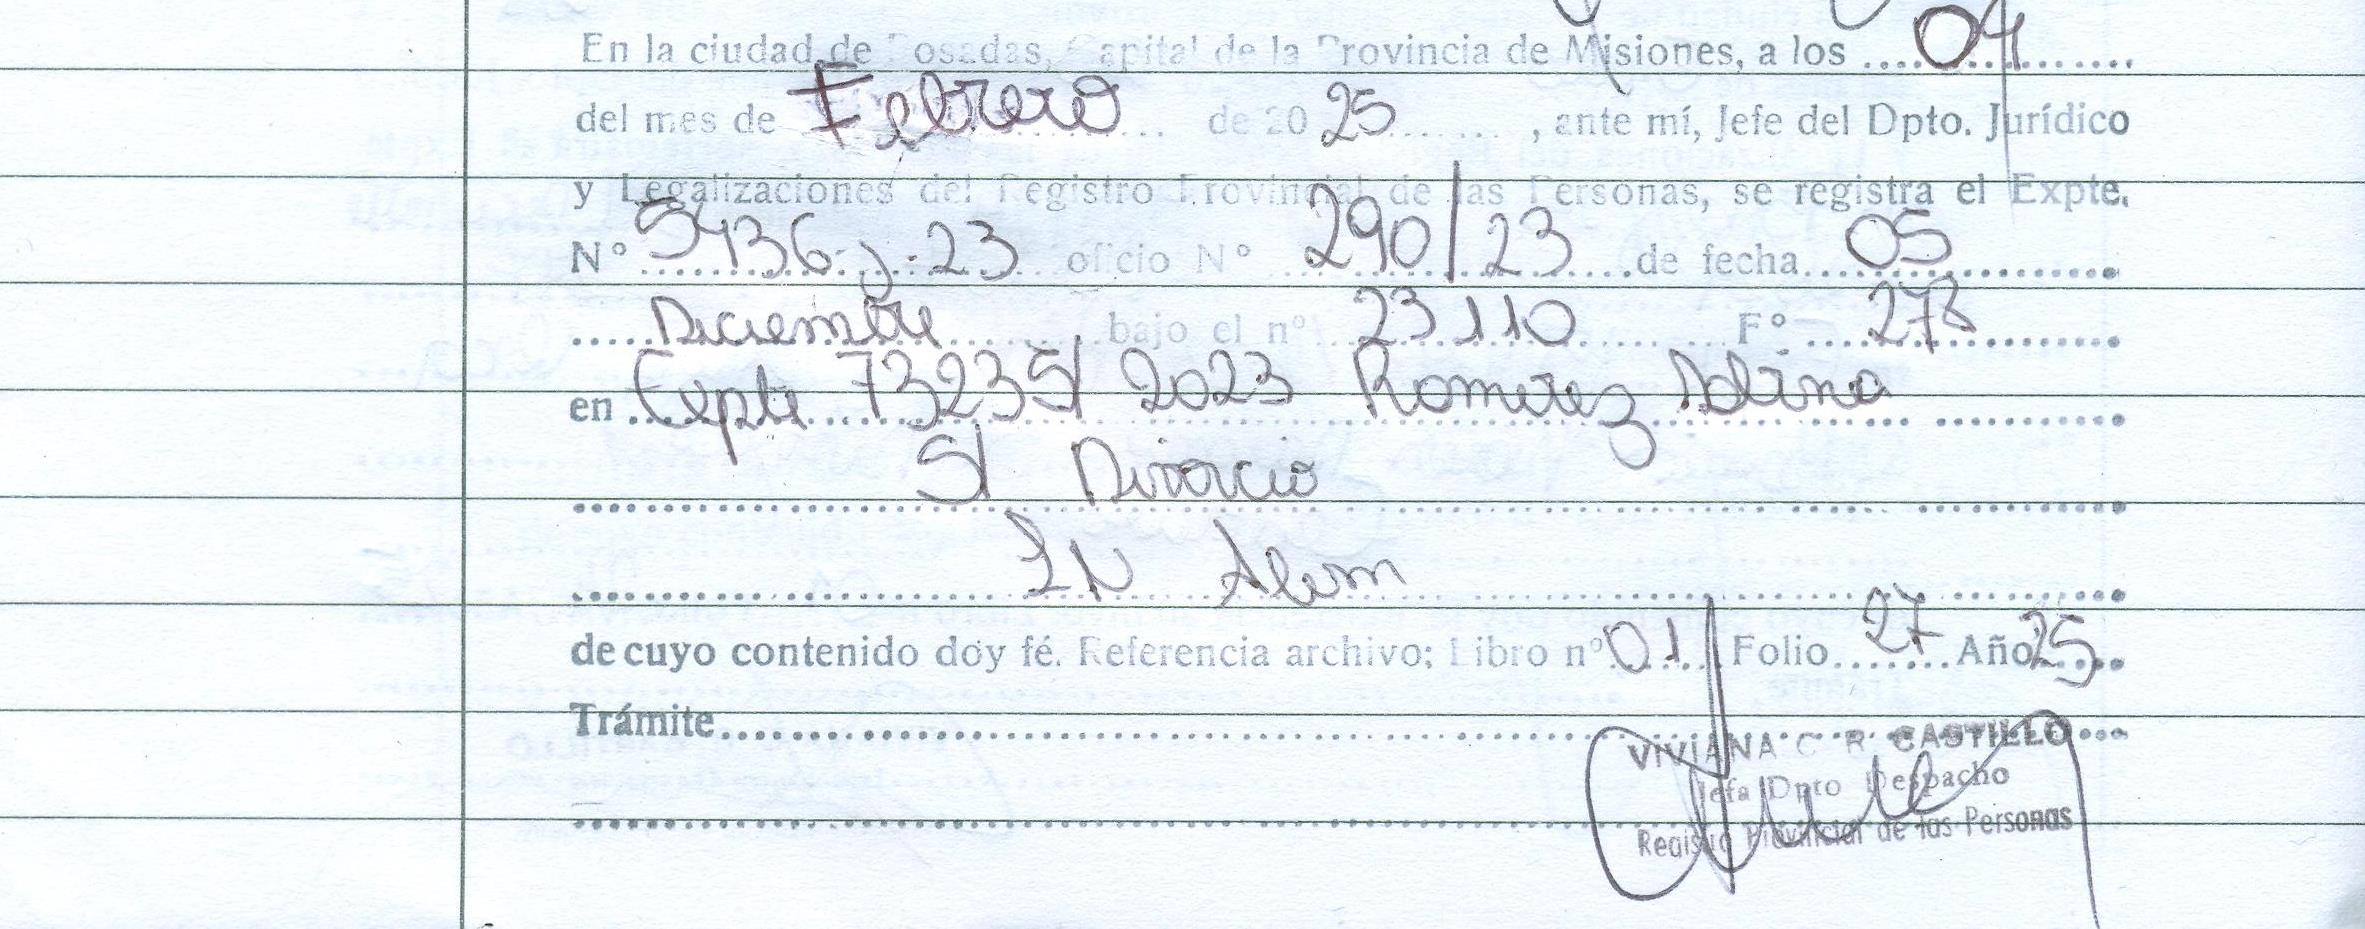 En la ciudad de Posadas, Capital de la Provincia de Misiones, a los 04
del mes de Febrero de 2025, ante mí, Jefe del Dpto. Jurídico
y Legalizaciones del Registro Provincial de las Personas, se registra el Expte.
Nº 5436-J-23 oficio Nº 290/23 de fecha 05
Diciembre bajo el nº 23110 Fº 278
en Expte 73235/2023 Romerez
S/ Divorcio
LN Alem
de cuyo contenido doy fé. Referencia archivo: Libro nº 01 Folio 27 Año 25
Trámite
VIVIANA C. R. CASTILLO
Jefa Dpto Despacho
Registro Provincial de las Personas